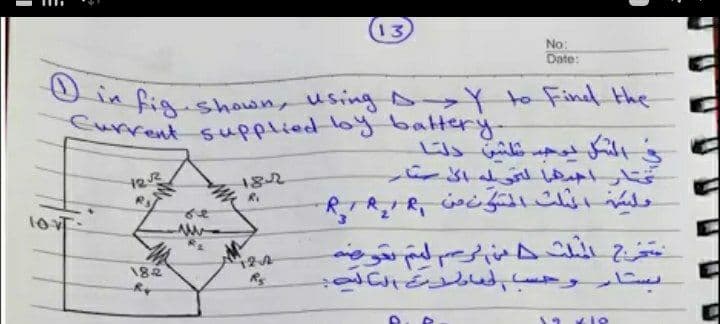 13
No:
Date:
① in fig. shown, using Δ → Y to Find the
Current supplied by battery.
في الشكل يوجد مثلثين دلتا
نختار احدهما لتحويله الى ستار
وليكن المثلث المتكون من R₁, R₂, R₃
نستخرج المثلث Δ من الرسم ليتم تعويضه
بستار وحسب المعادلات التالية:
12Ω
R₃
18Ω
R₁
6Ω
R₂
10V
18Ω
R₄
12Ω
R₅